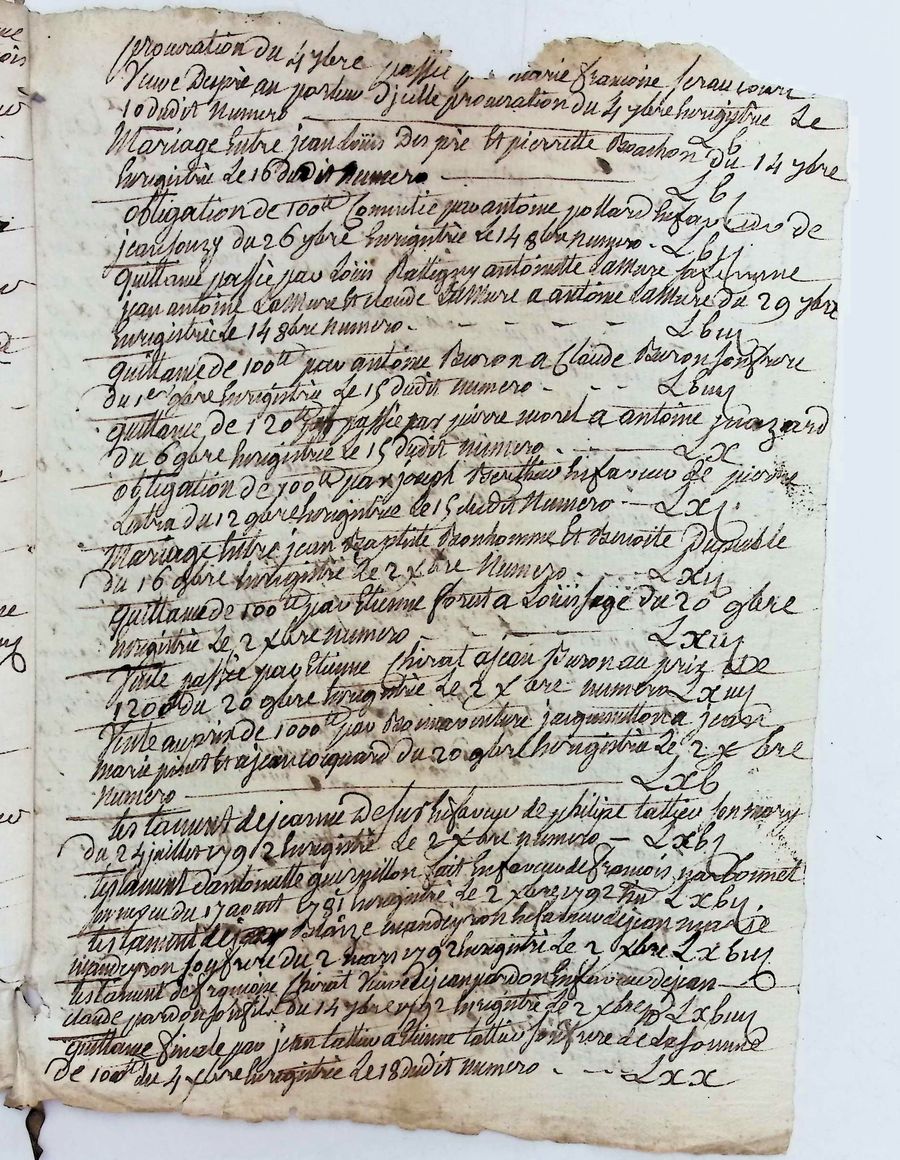 procuration du 4 7bre passée marie francoise
Veuve Dupré au porteur d'jcelle procuration du 4 7bre Enregistrée Le
10 dudit Numero Lb
Mariage Entre jean Loüis Despré Et pierrette Bachon du 14 7bre
Enregistrée Le 16 dudit Numero Lbj
obligation de 100tt Consentie par antoine pollard Enfaveur de
jean du 26 7bre Enregistrée Le 14 8bre numero - Lbij
quittance passée par Loüis antoinette Lamure sa femme
jean antoine Lamure Et claude Lamure a antoine Lamure du 29 7bre
Enregistrée Le 14 8bre numero - - - - - Lbiij
quittance de 100tt par antoine Buron a Claude Buron son frere
du 1er 9bre Enregistrée Le 15 dudit numero - - - Lbiiij
quittance de 120tt passée par pierre morel a antoine
du 6 9bre Enregistrée Le 15 dudit numero - - - Lx
obligation de 100tt par joseph Berthier Enfaveur de pierre
Labra du 12 9bre Enregistrée Le 15 dudit Numero - Lxj
Mariage Entre jean Baptiste Bonhomme Et Benoitte Dupuble
du 16 9bre Enregistré Le 2 Xbre Numero - - - Lxij
quittance de 100tt par Etienne foret a Loüis sage du 20 9bre
Enregistrée Le 2 xbre numero Lxiij
Vente passée par Etienne Chirat a jean Buron au prix de
1200tt du 20 9bre Enregistrée Le 2 Xbre numero Lxiiij
Vente au prix de 1000tt par Bonnaventure jacquemillon a jean
marie pinet Et a jean cocquard du 20 9bre Enregistrée Le 2 Xbre
Numero Lxb
testament de jeanne Enfaveur de philipe tallieu son mary
du 24 juillet 1792 Enregistré Le 2 Xbre numero - Lxbj
testament d'antoinette fait Enfaveur de francois narbonnet
son neveu du 17 aoust 1781 Enregistré Le 2 xbre 1792 no Lxbij
testament de Blaize mandeyron Enfaveur de jean marie
mandeyron son frere du 2 mars 1792 Enregistré Le 2 Xbre Lxbiij
testament de francoise Chirat Veuve de jean pardon Enfaveur de jean
claude pardon son fils du 14 7bre 1792 Enregistré Le 2 xbre no Lxbiiij
quittance finale par jean tallieu a Etienne tallieu son frere de La somme
de 100tt du 4 xbre Enregistrée Le 18 dudit numero - - - Lxx